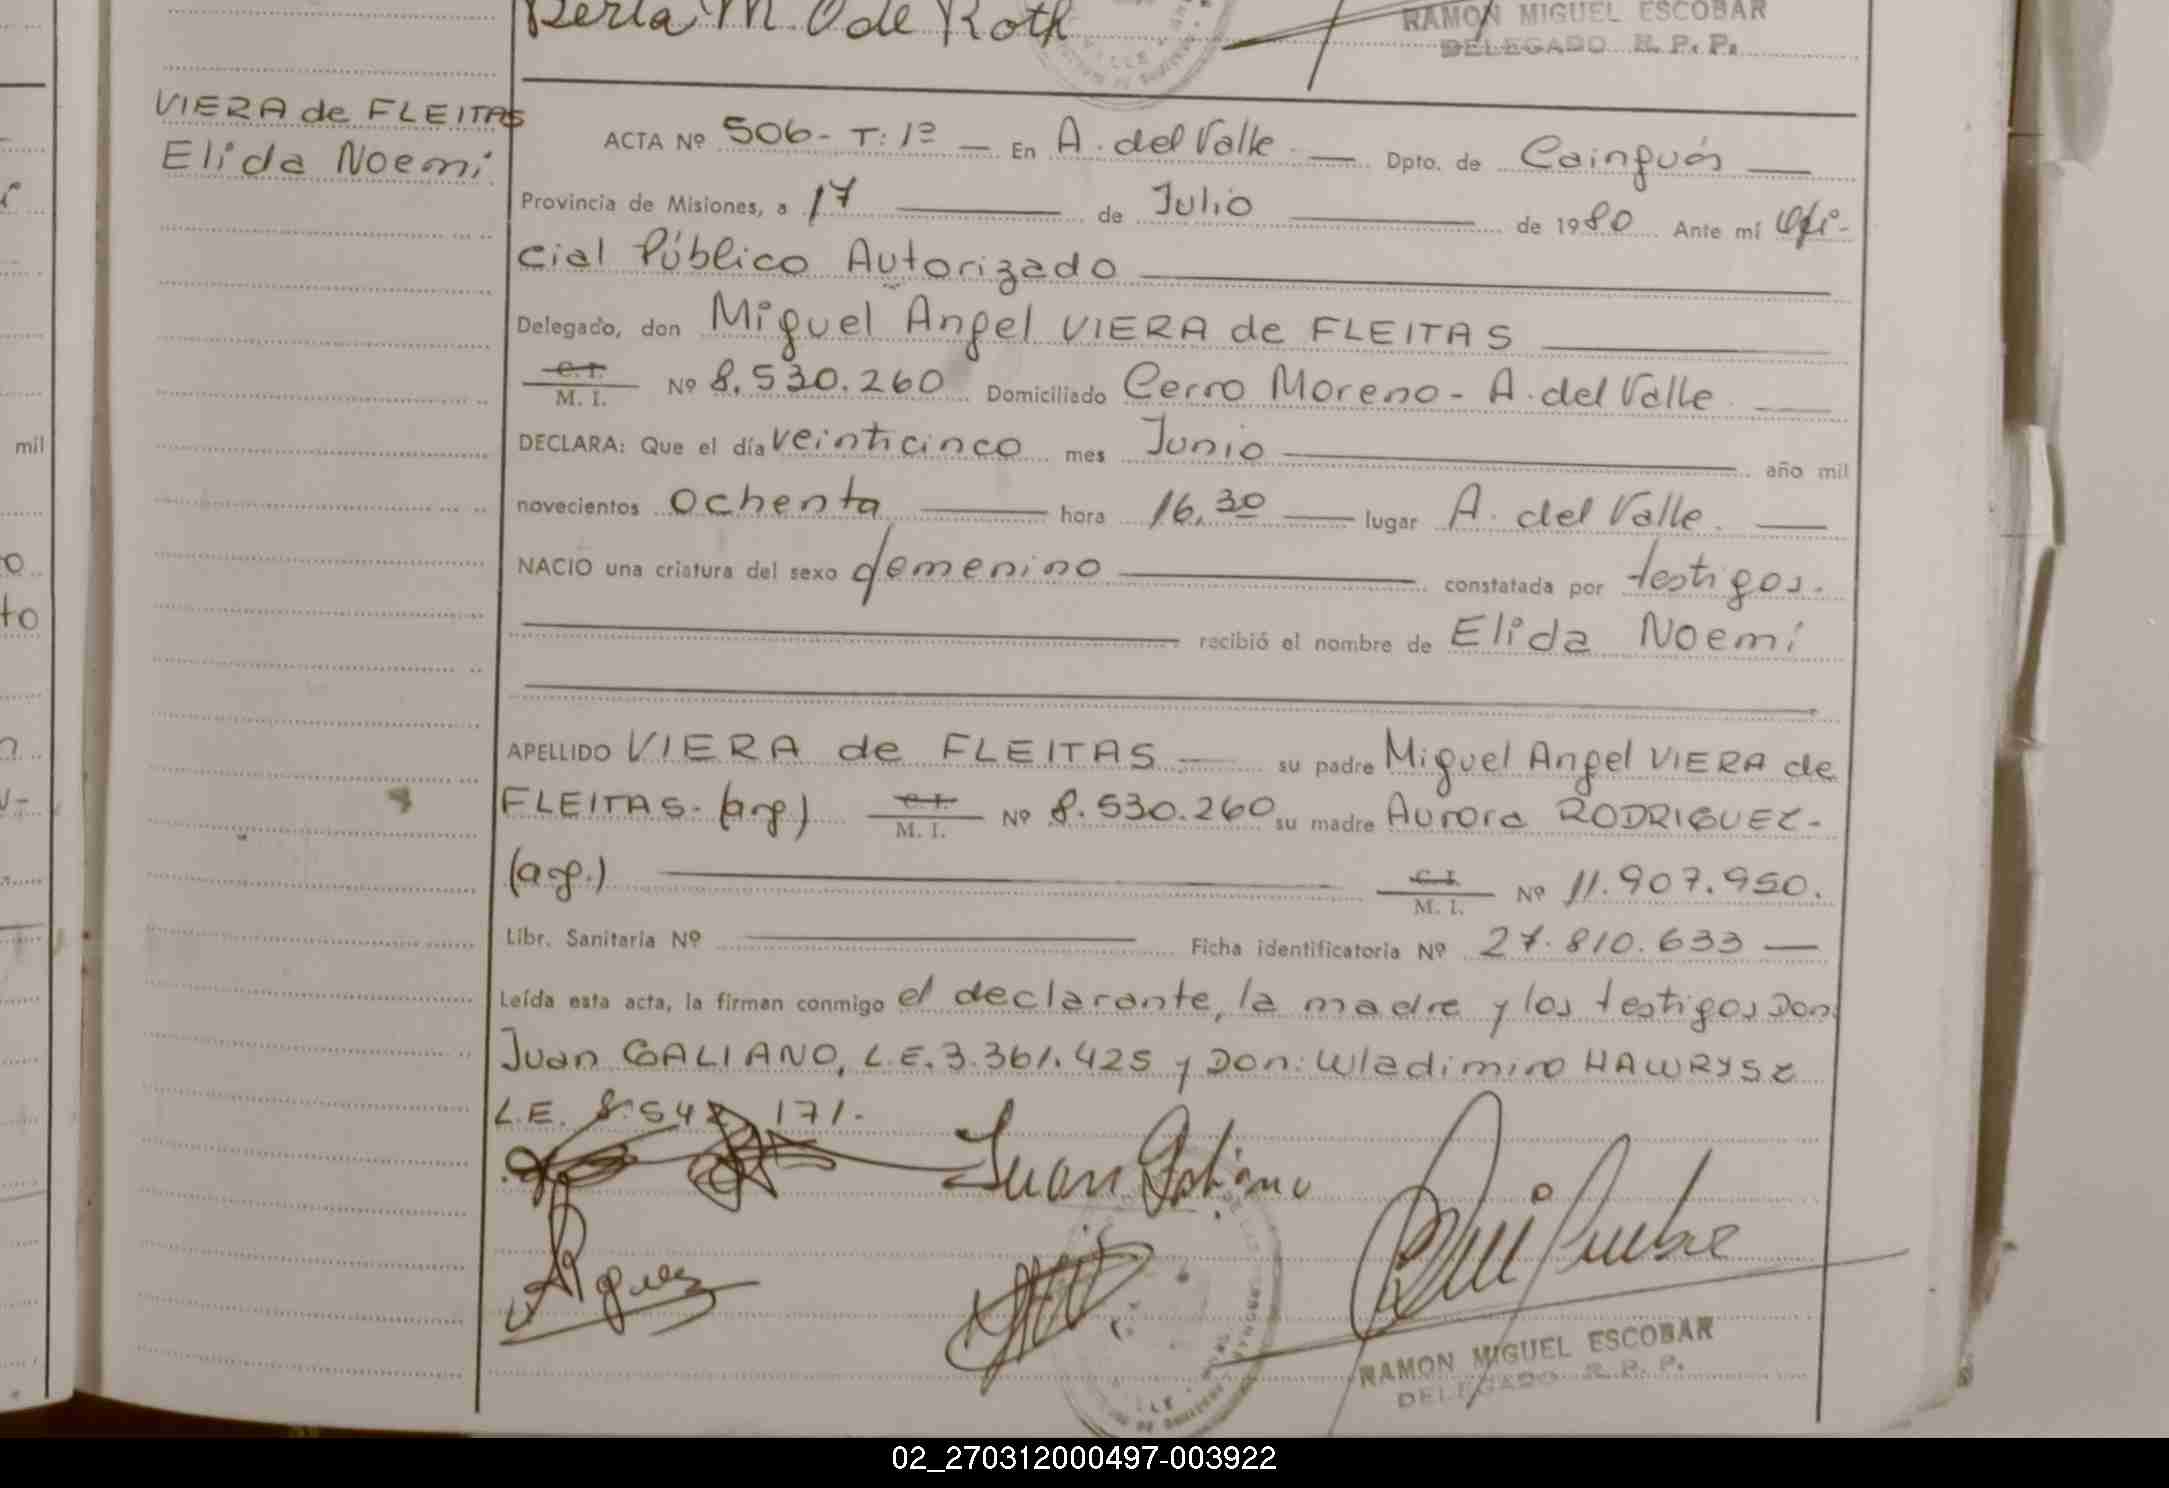 Berta M. O de Roth
RAMON MIGUEL ESCOBAR
DELEGADO R. P. P.
VIERA de FLEITAS
Elida Noemi
ACTA Nº 506- T: 1º — En A. del Valle — Dpto. de Cainguás —
Provincia de Misiones, a 17 — de Julio — de 1980 Ante mí Ofi-
cial Público Autorizado —
Delegado, don Miguel Angel VIERA de FLEITAS —
C. I.
M. I. Nº 8.530.260 Domiciliado Cerro Moreno - A. del Valle —
DECLARA: Que el día veinticinco mes Junio — año mil
novecientos ochenta — hora 16,30 — lugar A. del Valle. —
NACIO una criatura del sexo femenino — constatada por testigos.
— recibió el nombre de Elida Noemi
APELLIDO VIERA de FLEITAS — su padre Miguel Angel VIERA de
FLEITAS. (arg.) C. I. M. I. Nº 8.530.260 su madre Aurora RODRIGUEZ -
(arg.) — C. I. M. I. Nº 11.907.950.
Libr. Sanitaria Nº — Ficha identificatoria Nº 27.810.633 —
Leída esta acta, la firman conmigo el declarante, la madre y los testigos Don
Juan GALIANO, L.E. 3.361.425 y Don: Wladimiro HAWRYSZ
L.E. 8.542.171.-
Juan Galiano
RAMON MIGUEL ESCOBAR
DELEGADO R. P. P.
mil
to
02_270312000497-003922